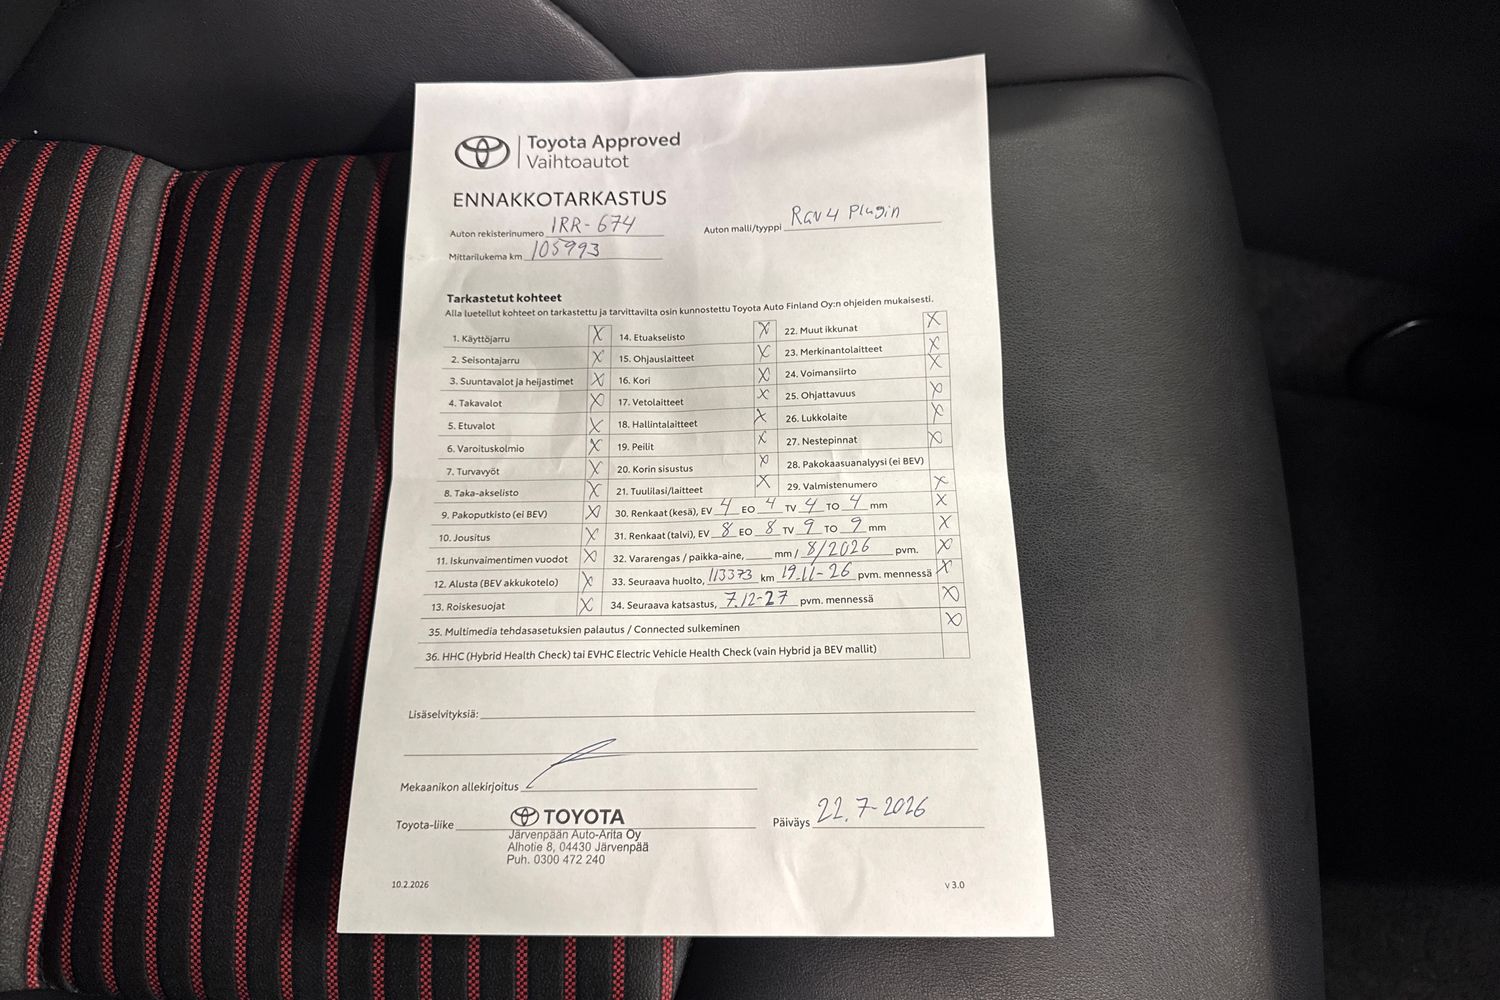 Toyota Approved
Vaihtoautot
ENNAKKOTARKASTUS
Auton rekisterinumero IRR-674
Auton malli/tyyppi Rav4 Plugin
Mittarilukema km 105993
Tarkastetut kohteet
Alla luetellut kohteet on tarkastettu ja tarvittavilta osin kunnostettu Toyota Auto Finland Oy:n ohjeiden mukaisesti.
1. Käyttöjarru X
2. Seisontajarru X
3. Suuntavalot ja heijastimet X
4. Takavalot X
5. Etuvalot X
6. Varoituskolmio X
7. Turvavyöt X
8. Taka-akselisto X
9. Pakoputkisto (ei BEV) X
10. Jousitus X
11. Iskunvaimentimen vuodot X
12. Alusta (BEV akkukotelo) X
13. Roiskesuojat X
14. Etuakselisto X
15. Ohjauslaitteet X
16. Kori X
17. Vetolaitteet X
18. Hallintalaitteet X
19. Peilit X
20. Korin sisustus X
21. Tuulilasi/laitteet X
22. Muut ikkunat X
23. Merkinantolaitteet X
24. Voimansiirto X
25. Ohjattavuus X
26. Lukkolaite X
27. Nestepinnat X
28. Pakokaasuanalyysi (ei BEV)
29. Valmistenumero X
30. Renkaat (kesä), EV 4 EO 4 TV 4 TO 4 mm X
31. Renkaat (talvi), EV 8 EO 8 TV 9 TO 9 mm X
32. Vararengas / paikka-aine, mm / 8/2026 pvm. X
33. Seuraava huolto, 113373 km 19.11-26 pvm. mennessä X
34. Seuraava katsastus, 7.12-27 pvm. mennessä X
35. Multimedia tehdasasetuksien palautus / Connected sulkeminen X
36. HHC (Hybrid Health Check) tai EVHC Electric Vehicle Health Check (vain Hybrid ja BEV mallit)
Lisäselvityksiä:
Mekaanikon allekirjoitus
Toyota-liike TOYOTA
Järvenpään Auto-Arita Oy
Alhotie 8, 04430 Järvenpää
Puh. 0300 472 240
Päiväys 22.7-2026
10.2.2026
v 3.0